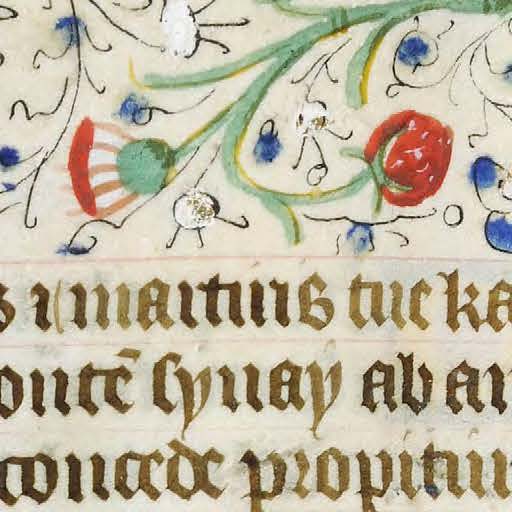 s ⁊ martiris tue ka
ontē synay ab an
concede propitiu